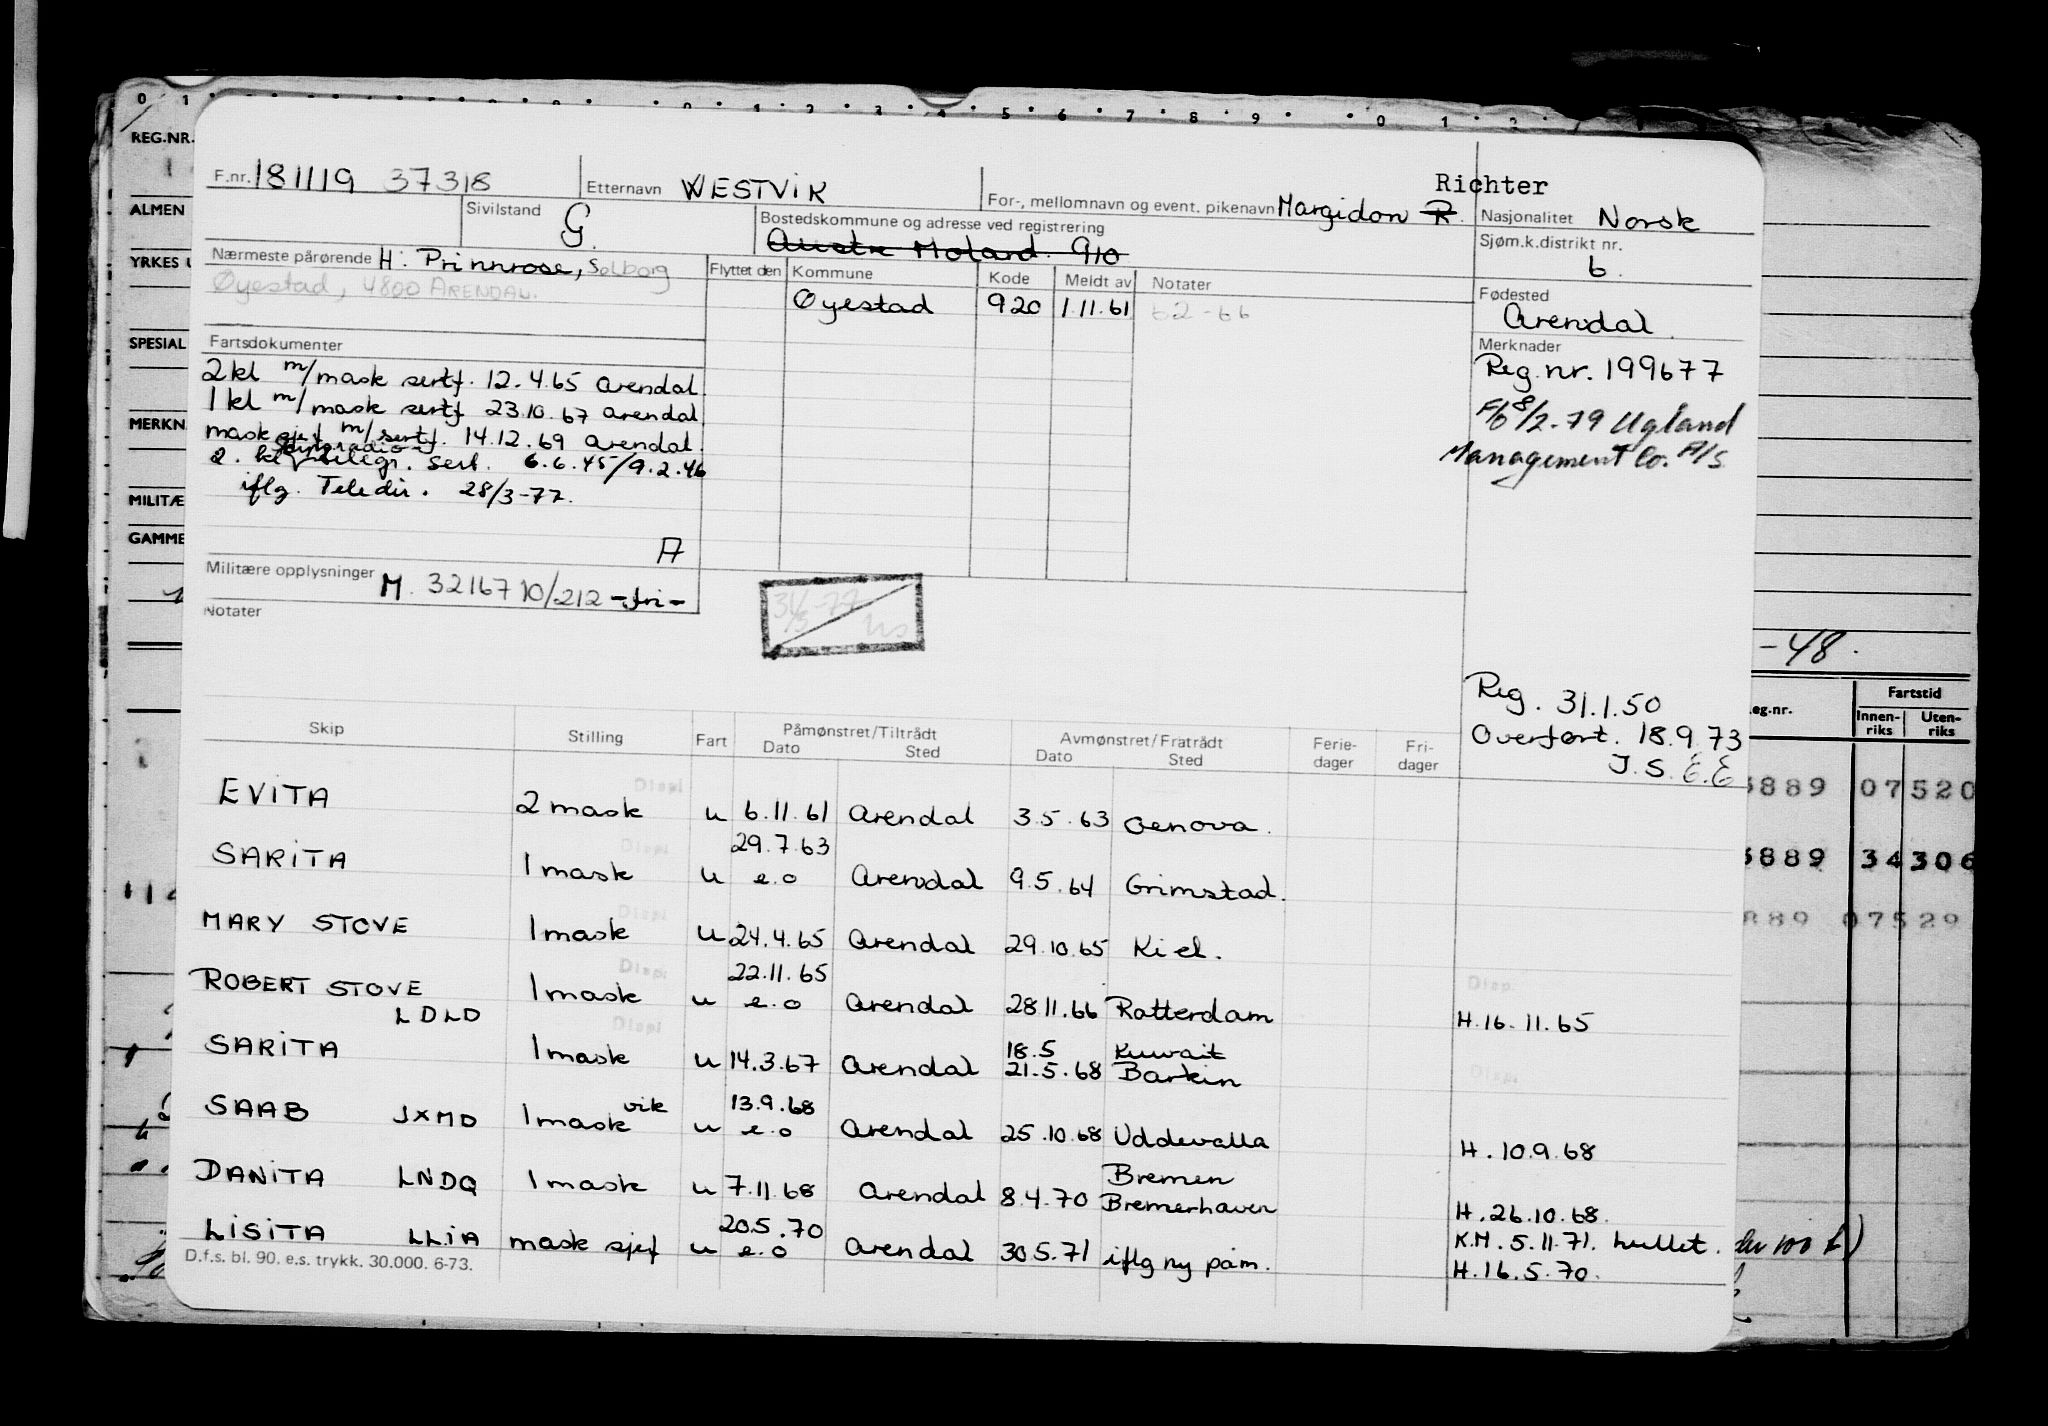 0 1 0 1 2 3 4 5 6 7 8 9 0 1 2
REG.NR.
ALMEN
YRKES
SPESIAL
MERKN
MILITÆ
GAMME
F.nr. 181119 37318
Etternavn WESTVIK
For-, mellomnavn og event. pikenavn Margidon R.
Richter
Nasjonalitet Norsk
Sivilstand G.
Bostedskommune og adresse ved registrering
Austre Moland. 910
Sjøm.k.distrikt nr.
6.
Nærmeste pårørende H: Primrose, Solborg
Øyestad, 4800 ARENDAL.
Flyttet den Kommune Kode Meldt av Notater
Øyestad 920 1.11.61 62-66
Fødested
Arendal.
Fartsdokumenter
2 kl m/mask sertf. 12.4.65 Arendal.
1 kl m/mask sertf 23.10.67 Arendal
mask sjef m/sertf. 14.12.69 Arendal.
2. kl telegr. sert. 6.6.45/9.2.46
iflg. Teledir. 28/3-77.
A
Merknader
Reg. nr. 199677
F/b 8/2-79 Ugland
Management Co. A/S
Militære opplysninger M. 3216710/212 -fri-
Notater
31/3-77
-48.
Reg. 31.1.50
Overført. 18.9.73
J.S. E.E
Skip Stilling Fart Påmønstret/Tiltrådt Dato Sted Avmønstret/Fratrådt Dato Sted Ferie-dager Fri-dager
eg.nr. Fartstid
Innen-riks Uten-riks
EVITA 2 mask u 6.11.61 Arendal 3.5.63 Genova.
Displ
SARITA 1 mask u 29.7.63 e.o Arendal 9.5.64 Grimstad.
Displ
MARY STOVE 1 mask u 24.4.65 Arendal 29.10.65 Kiel.
Displ
ROBERT STOVE LDLD 1 mask u 22.11.65 e.o Arendal 28.11.66 Rotterdam H.16.11.65
Displ
SARITA 1 mask u 14.3.67 Arendal 18.5 21.5.68 Kuwait Barkin
Displ
SAAB JXMD 1 mask vik u 13.9.68 e.o Arendal 25.10.68 Uddevalla H.10.9.68
DANITA LNDQ 1 mask u 7.11.68 Arendal 8.4.70 Bremen Bremerhaven H.26.10.68.
LISITA LLIA mask sjef u 20.5.70 e.o Arendal 30.5.71 iflg ny påm. K.M. 5.11.71. hullet.
H.16.5.70.
D.f.s. bl. 90. e.s. trykk. 30.000. 6-73.
8889 07520
8889 34306
889 07529